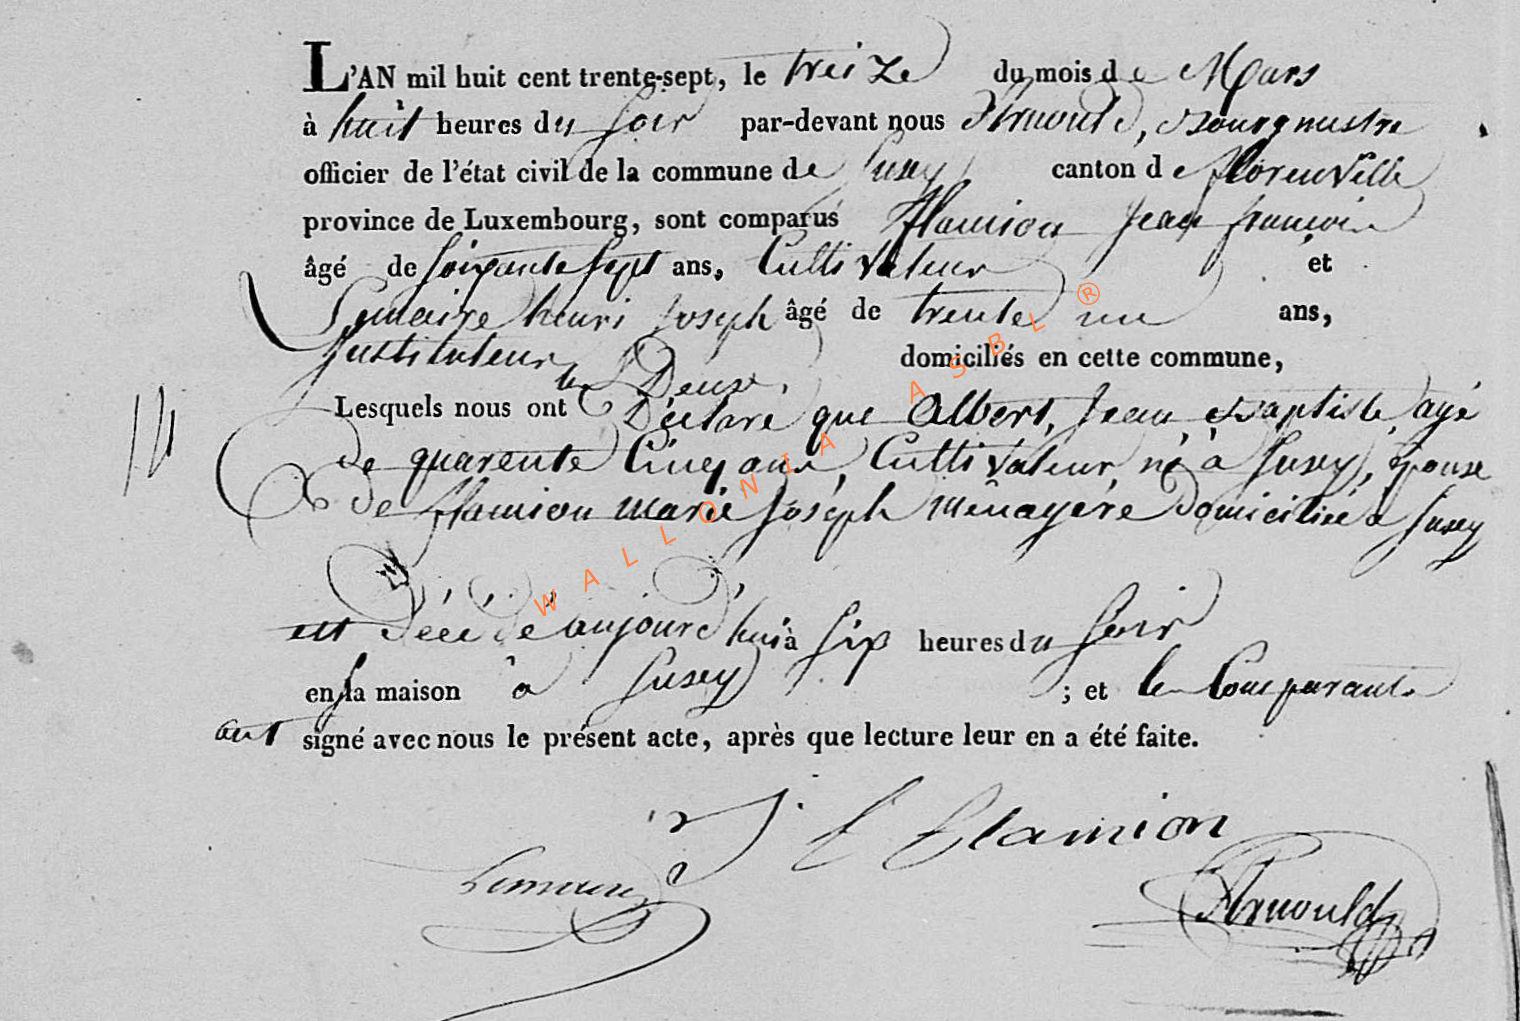 L'AN mil huit cent trente-sept, le treize du mois de Mars
à huit heures du soir par-devant nous Arnould, Bourgmestre
officier de l'état civil de la commune de Susey canton de florenville
province de Luxembourg, sont comparus Flamion Jean françois
âgé de soixante sept ans, Cultivateur et
Lemaire henri Joseph âgé de trente un ans,
Instituteur domiciliés en cette commune,
les Deux,
Lesquels nous ont Déclaré que Albert, Jean Baptiste, agé
de quarente Cinq ans, Cultivateur, né à Susey, épouse
de flamion marie Joséph ménagére Domiciliée à Susey
est décédé aujourd'hui à six heures du soir
en sa maison à Susey ; et les Comparants
ont signé avec nous le présent acte, après que lecture leur en a été faite.
J f flamion
Lemaire
Arnould
WALLONIA ASBL ®